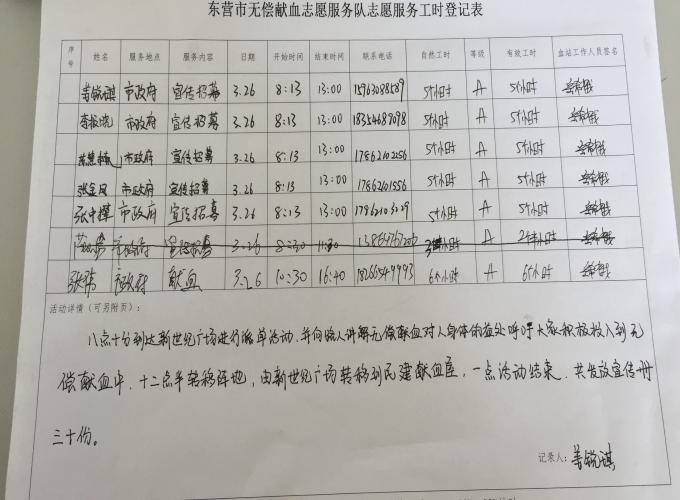 东营市无偿献血志愿服务队志愿服务工时登记表
序号 姓名 服务地点 服务内容 日期 开始时间 结束时间 联系电话 自然工时 等级 有效工时 血站工作人员签名
姜锐祺 市政府 宣传招募 3.26 8:13 13:00 15963088589 5小时 A 5小时
市政府 宣传招募 3.26 8:13 13:00 18354689098 5小时 A 5小时
市政府 宣传招募 3.26 8:13 13:00 17862102256 5小时 A 5小时
张金凤 市政府 宣传招募 3.26 8:13 13:00 17862101556 5小时 A 5小时
张中祺 市政府 宣传招募 3.26 8:13 13:00 5小时 A 5小时
市政府 宣传招募 3.26 8:30 11:30 A
张 市政府 献血 3.26 10:30 16:40 18266549993 6小时 A 6小时
活动详情（可另附页）：
八点十分到达新世纪广场进行派单活动、并向路人讲解无偿献血对人身体的益处呼吁大家积极投入到无
偿献血中．十二点半转移阵地，由新世纪广场转移到民建献血屋，一点活动结束．共发放宣传册
三十份。
记录人：姜锐祺